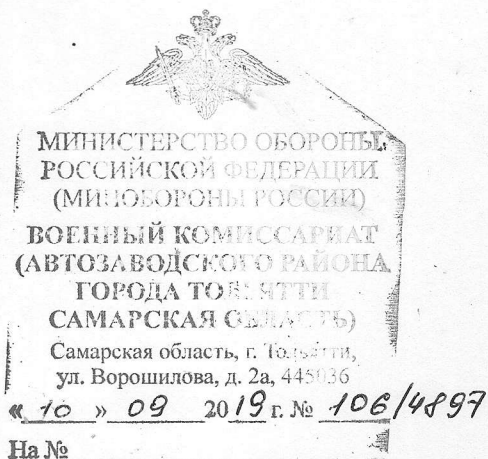 МИНИСТЕРСТВО ОБОРОНЫ
РОССИЙСКОЙ ФЕДЕРАЦИИ
(МИНОБОРОНЫ РОССИИ)
ВОЕННЫЙ КОМИССАРИАТ
(АВТОЗАВОДСКОГО РАЙОНА
ГОРОДА ТОЛЬЯТТИ
САМАРСКАЯ ОБЛАСТЬ)
Самарская область, г. Тольятти,
ул. Ворошилова, д. 2а, 445036
« 10 » 09 2019 г. № 106/4897
На №